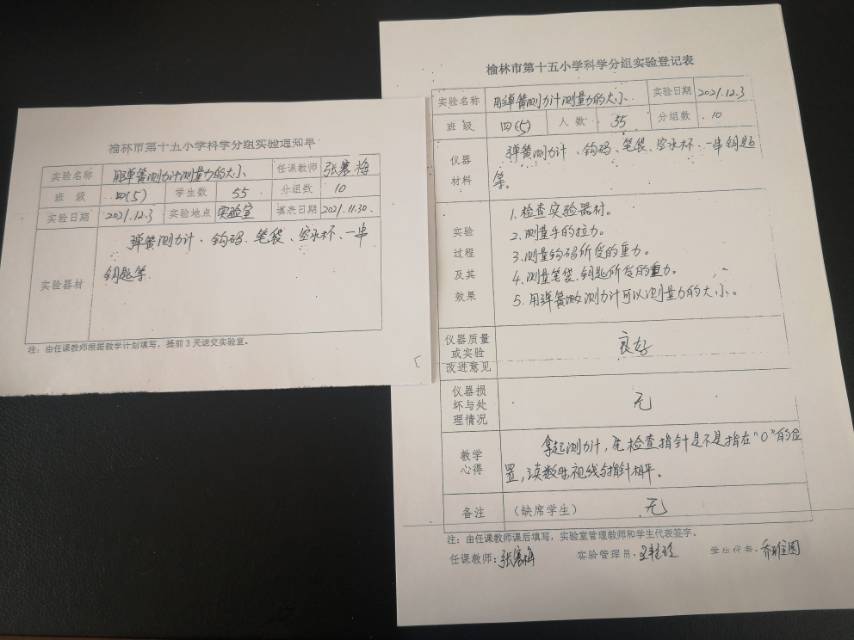 榆林市第十五小学科学分组实验通知单
实验名称 用弹簧测力计测量力的大小 任课教师 张寒梅
班 级 四(5) 学生数 55 分组数 10
实验日期 2021.12.3 实验地点 实验室 填表日期 2021.11.30.
实验器材 弹簧测力计、钩码、笔袋、空水杯、一串
钥匙等.
注：由任课教师根据教学计划填写，提前3天送交实验室。
榆林市第十五小学科学分组实验登记表
实验名称 用弹簧测力计测量力的大小. 实验日期 2021.12.3
班 级 四(5) 人 数 55 分组数 10
仪器 弹簧测力计、钩码、笔袋、空水杯、一串钥匙
材料 等。
实验 1.检查实验器材。
2.测量手的拉力。
过程 3.测量钩码所受的重力。
及其 4.测量笔袋、钥匙所受的重力。
效果 5.用弹簧测力计可以测量力的大小。
仪器质量
或实验 良好
改进意见
仪器损
坏与处 无
理情况
教学 拿起测力计，先检查指针是不是指在"0"的位
心得 置，读数时视线与指针相平。
备注 （缺席学生） 无
注：由任课教师课后填写，实验室管理教师和学生代表签字。
任课教师：张寒梅 实验管理员： 学生代表：